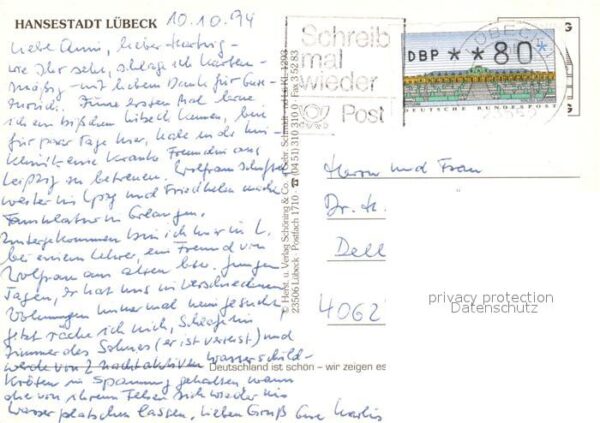 HANSESTADT LÜBECK 10.10.94
Liebe Anni, lieber Hartwig –
wie Ihr seht, schlage ich karten-
mäßig mit liebem Dank für Eure
zurück. Zum ersten Mal lerne
ich ein bißchen Lübeck kennen, bin
für paar Tage hier, habe in die
Klinik eine kranke Freundin aus
Leipzig zu betreuen. Wolfram
weiter in Lpzg und Friedhelm
in Erlangen.
Untergekommen bin ich hier in L.
bei einem Lehrer, ein Freund von
Wolfram aus alten bzw. jungen
Tagen, er hat uns in verschiedenen
Wohnungen immer mal heimgesucht,
jetzt räche ich mich, schlafe im
Zimmer des Sohnes (er ist verreist) und
werde von 2 nachtaktiven Wasserschild-
kröten in Spannung gehalten wann
die von ihrem Felsen sich wieder ins
Wasser platschen lassen. Lieben Gruß Eure
© Herst. u. Verlag Schöning & Co. + Gebr. Schmidt
23506 Lübeck · Postfach 1710 · (0451) 310 310 · Fax 3 52 83
Schreib
mal
wieder
Post
DBP * * 80 *
DEUTSCHE BUNDESPOST
Herrn und Frau
Dr. H.
Dell
4062
privacy protection
Datenschutz
Deutschland ist schön – wir zeigen es